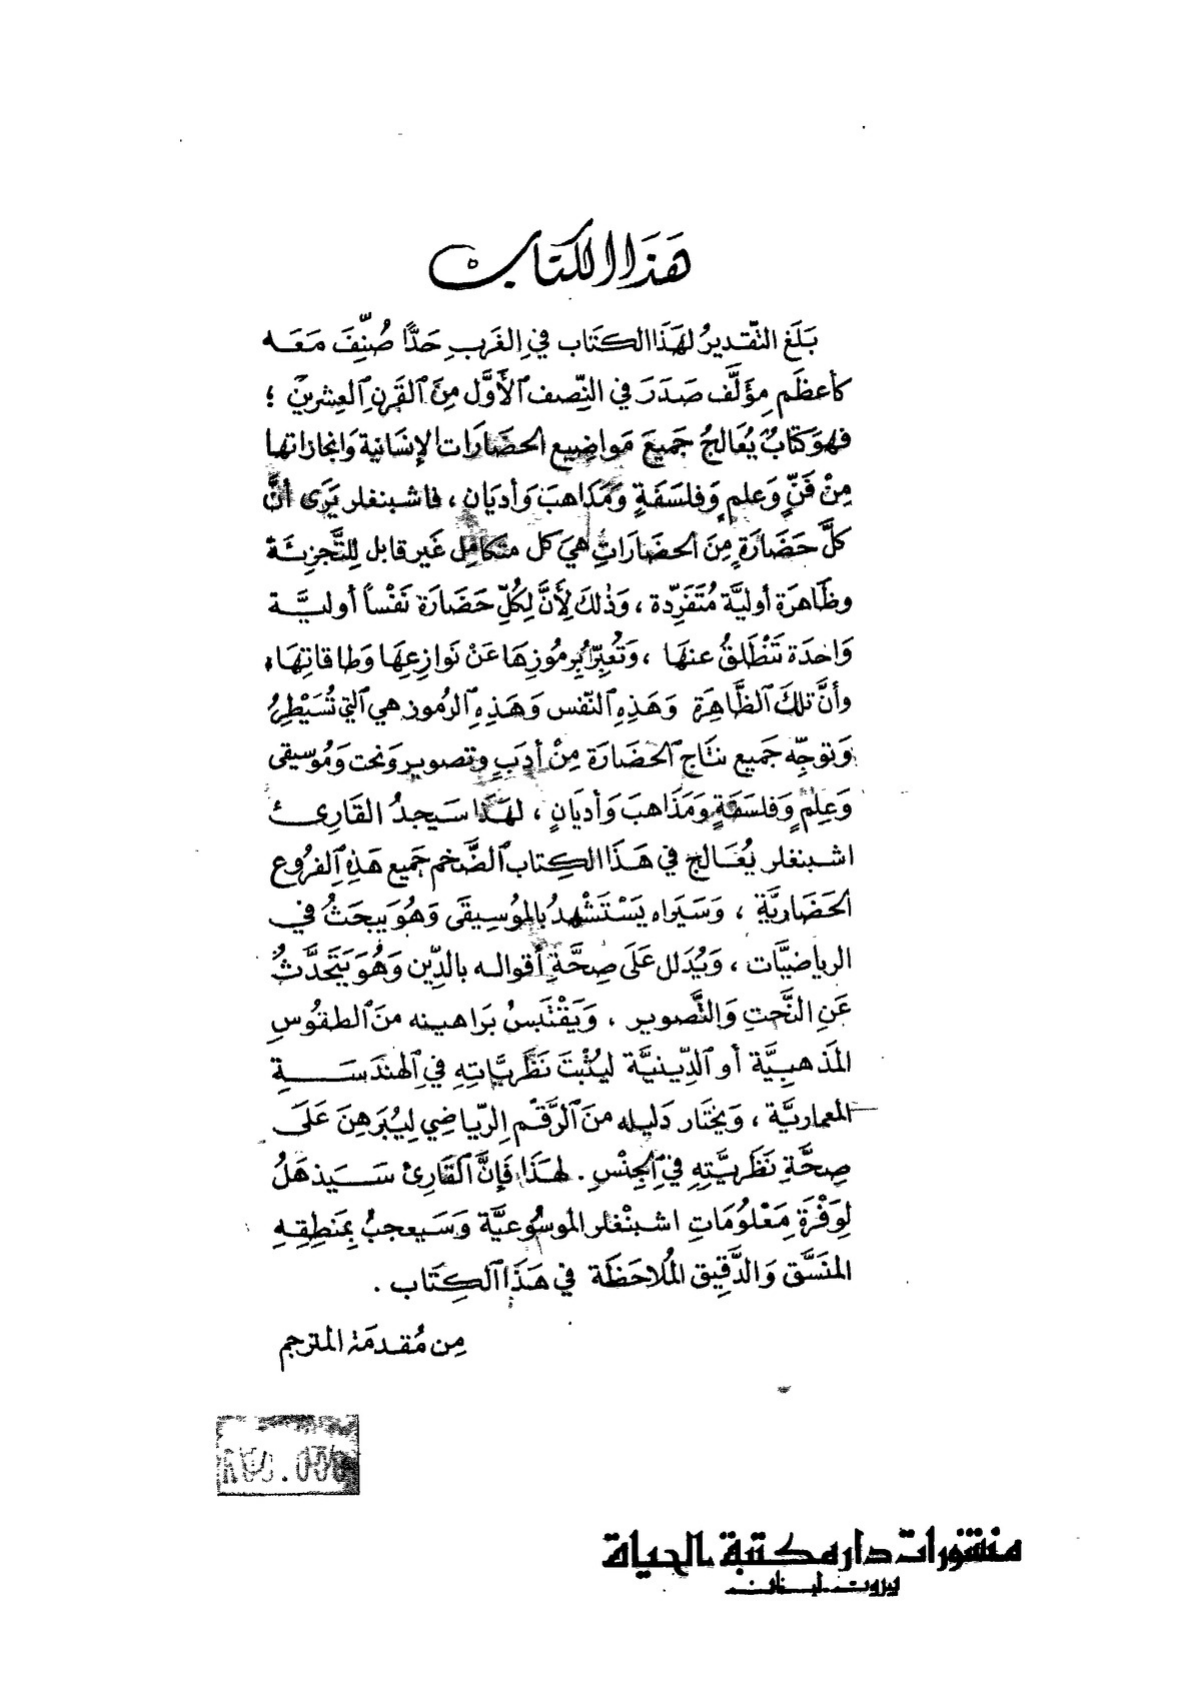 هَذَا الكتاب
بَلَغ التّقديرُ لهَذَا الكتَاب في الغَربِ حَدًّا صُنِّفَ مَعَه
كأعظَم مؤلَّف صَدَرَ في النِّصف الأَوَّل مِنَ القَرنِ العِشرين ؛
فهوَ كتابٌ يُعَالجُ جَميعَ مَواضيع الحضَارَات الإنسَانية وَانجازاتها
مِنْ فَنٍّ وَعلمٍ وَفلسَفَةٍ وَمَذاهبَ وَأديَان ، فاشبنغلر يَرَى أنَّ
كلَّ حَضَارَةٍ مِنَ الحضَارَاتِ هيَ كل متكامِل غَير قابل لِلتَّجزِئَة
وظَاهرَة أوليَّة مُتَفَرِّدة ، وَذٰلكَ لِأَنَّ لِكُلِّ حَضَارَة نَفْساً أوليـَّـة
وَاحدَة تَنْطَلقُ عنهَا ، وَتُعبِّرُ بِرموُزِهَا عَنْ نَوازِعهَا وَطاقاتِهَا ،
وأنَّ تلكَ الظَّاهرَة وَهَذِهِ النّفس وَهَذِهِ الرُموُز هي التي تُسَيْطِرُ
وَتوجِّه جَميع نتَاج الحَضَارَة مِنْ أدَبٍ وتصويرٍ وَنحت وَمُوسيقى
وَعِلمٍ وَفلسَفَةٍ وَمَذَاهبَ وَأديَانٍ ، لهَذَا سَيَجدُ القَارئ
اشبنغلر يُعَالج في هَذَا الكِتاب الضَّخم جَميع هَذِهِ الفرُوع
الحَضَاريَّة ، وَسَيَراه يَسْتَشْهدُ بالموُسِيقَى وَهُوَ يَبحَثُ في
الرياضيَّات ، وَيُدَلل عَلَى صِحَّةِ أقواله بالدِّين وَهُوَ يَتَحَدَّثُ
عَنِ النَّحتِ وَالتَّصوير ، وَيَقْتَبسُ بَراهينه منَ الطقوُسِ
المَذهبيَّة أو الدِّينيَّة ليُثْبتَ نَظَريَّاتِهِ في الهَندَسَـةِ
المعماريَّة ، وَيختَار دَليله منَ الرَّقم الرِّياضي لِيُبَرهِنَ عَلَى
صِحَّة نَظَريَّتِهِ في الجِنْسِ . لهذَا فَإنَّ القَارئ سَـيَذهَلُ
لِوَفْرَة مَعْلوُمَاتِ اشبنْغلر الموسُوعيَّة وَسَيعجبُ بمَنطِقِهِ
المنَسَّق وَالدَّقيق المُلاحَظَة في هَذَا الكِتَاب .
مِن مُقدمَة المترجم
منشورات دار مكتبة الحياة
بيروت لبنان